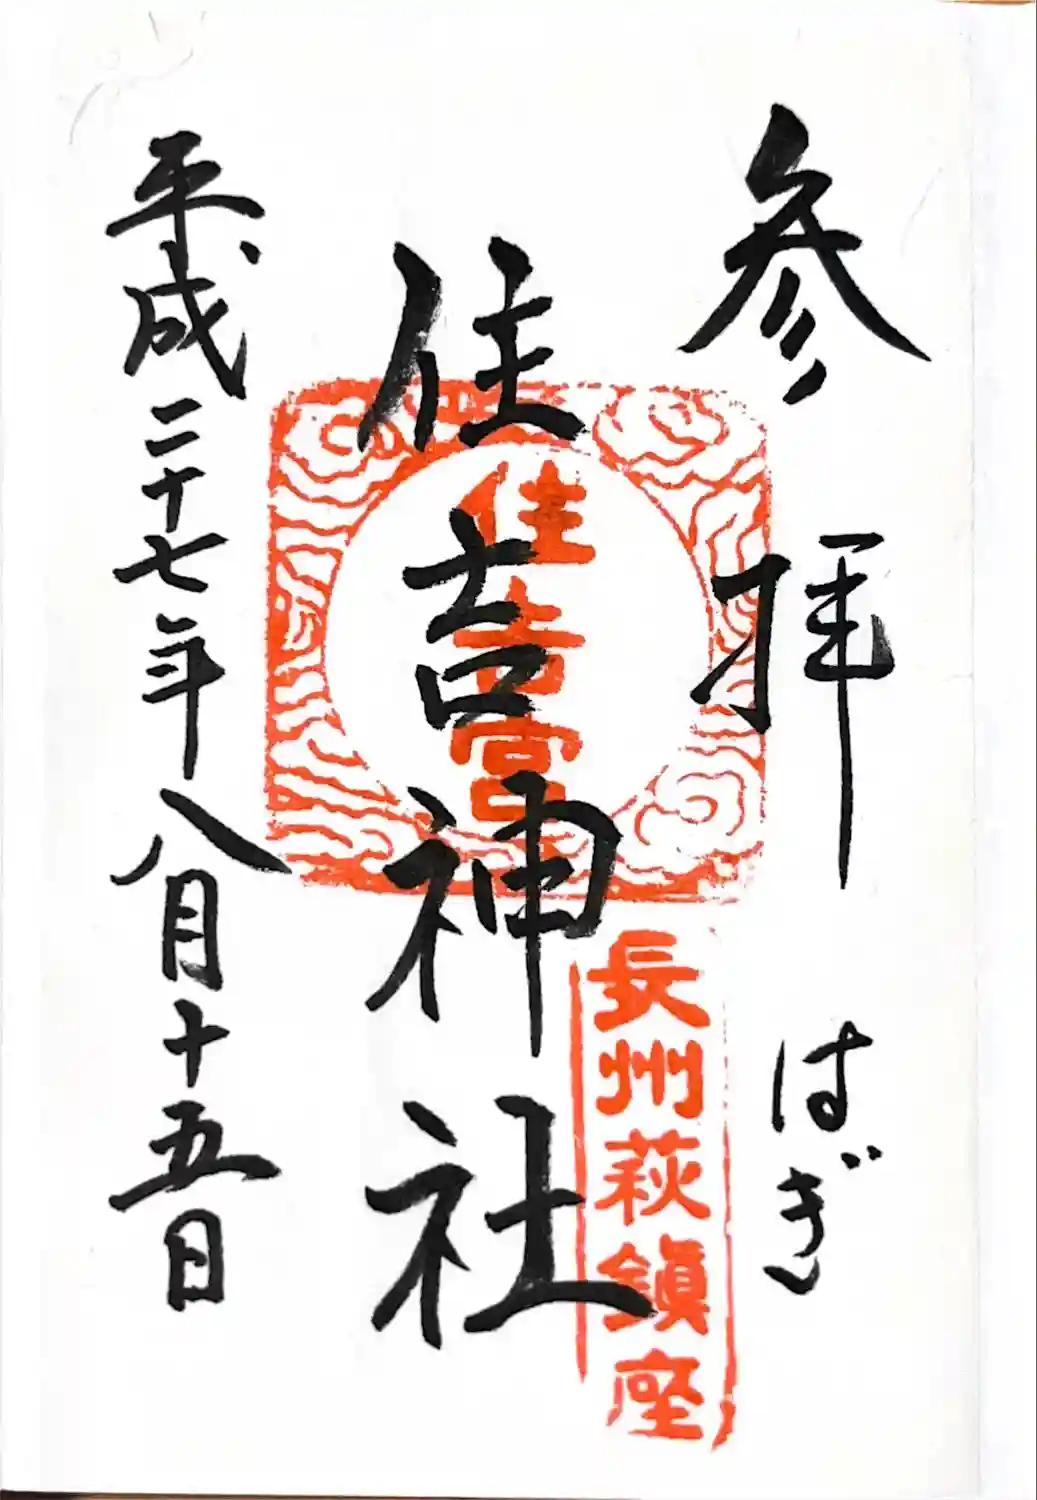 参拝 はぎ
住吉神社
平成二十七年八月十五日
住吉宮
長州萩鎭座